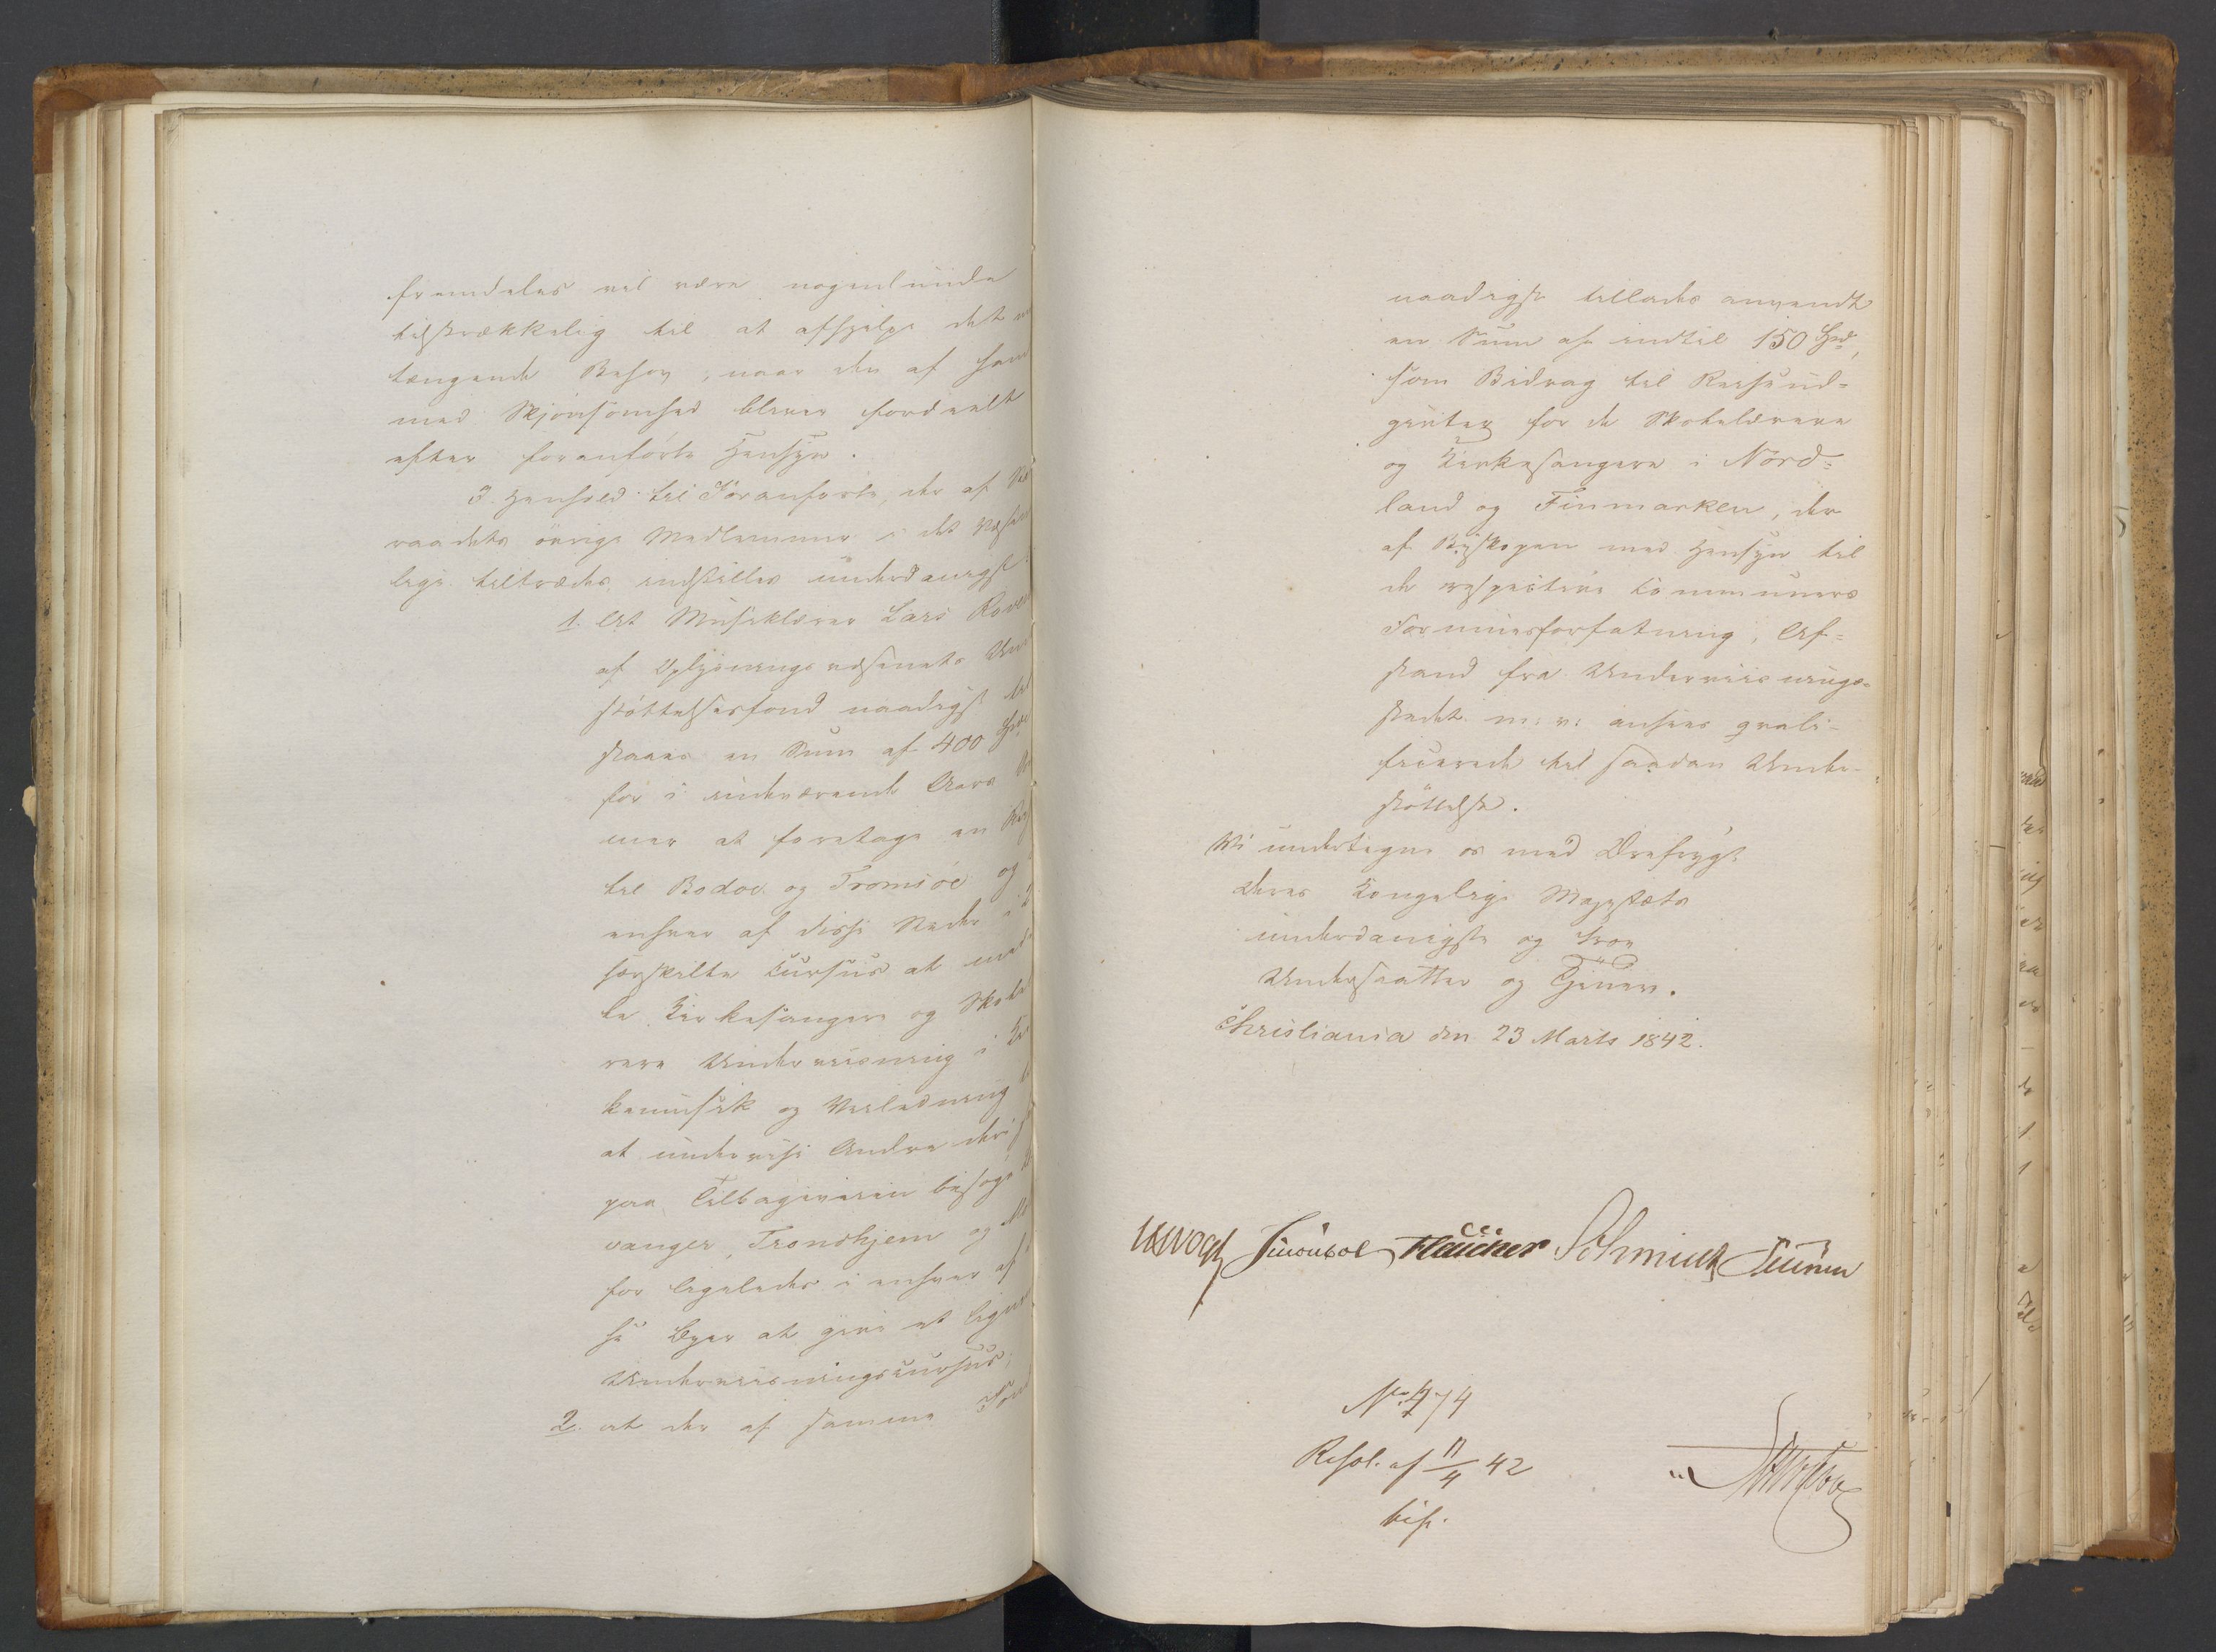 fremdeles vil være nogenlunde
tilstrækkelig til at afhjælpe det
tængende Behov, naar den af ham
med Skjønsomhed bliver fordeelt
efter foranførte Hensyn.
I Henhold til Foranførte, der af
raadets øvrige Medlemmer i det Væsent
lige tiltrædes, indstilles underdanigst:
1. At Musiklærer Lars Rover
af Oplysningsvæsenets Un
støttelsesfond naadigst til
staaes en Sum af 400 Spd
for i indeværende Aars
mer at foretage en
til Bodøe og Tromsøe og
enhver af disse Steder i
særskilte Cursus at med
le Kirkesangere og Skole
rere Underviisning i
kemusik og Veiledning
at undervise Andre deri
paa Tilbageveien besøge
vanger, Trondhjem og
for ligeledes i enhver af
se Byer at give et lign
Underviisningscursus;
2. at der af samme Fon
naadigst tillades anvendt
en Sum af indtil 150 Spd,
som Bidrag til Reiseud-
givter for de Skolelærere
og Kirkesangere i Nord-
land og Finmarken, der
af Biskopen med Hensyn til
de respective Communers
Formuesforfatning, Af-
stand fra Underviisnings-
stedet m: v: ansees quali-
ficerede til saadan Under-
støttelse.
Vi undertegne os med Ærefrygt
Deres Kongelige Majestæts
underdanigste og troe
Undersaatter og Tjenere.
Christiania den 23 Marts 1842.
Vogt Flaucher Schmidt
No 474
Resol. af 11/4 42